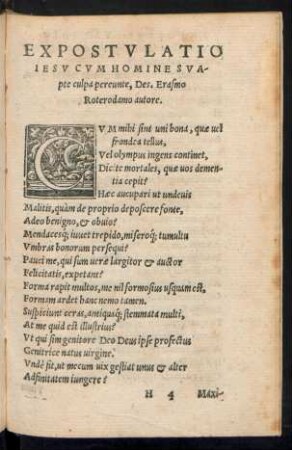 EXPOSTVLATIO
IESV CVM HOMINE SVA-
pte culpa pereunte, Des. Erasmo
Roterodamo autore.
CVM mihi sint uni bona, quæ uel
frondea tellus,
Vel olympus ingens continet,
Dicite mortales, quæ uos demen-
tia cepit?
Hæc aucupari ut undeuis
Malitis, quàm de proprio deposcere fonte,
Adeo benigno, & obuio?
Mendacesq; iuuet trepido, miseroq; tumultu
Vmbras bonorum persequi?
Pauci me, qui sum ueræ largitor & auctor
Felicitatis, expetant?
Forma rapit multos, me nil formosius usquam est,
Formam ardet hanc nemo tamen.
Suspiciunt ceras, antiquaq; stemmata multi,
At me quid est illustrius?
Vt qui sim genitore Deo Deus ipse profectus
Genitrice natus uirgine.
Vnde fit, ut mecum uix gestiat unus & alter
Adfinitatem iungere?
H 4 Maxi-